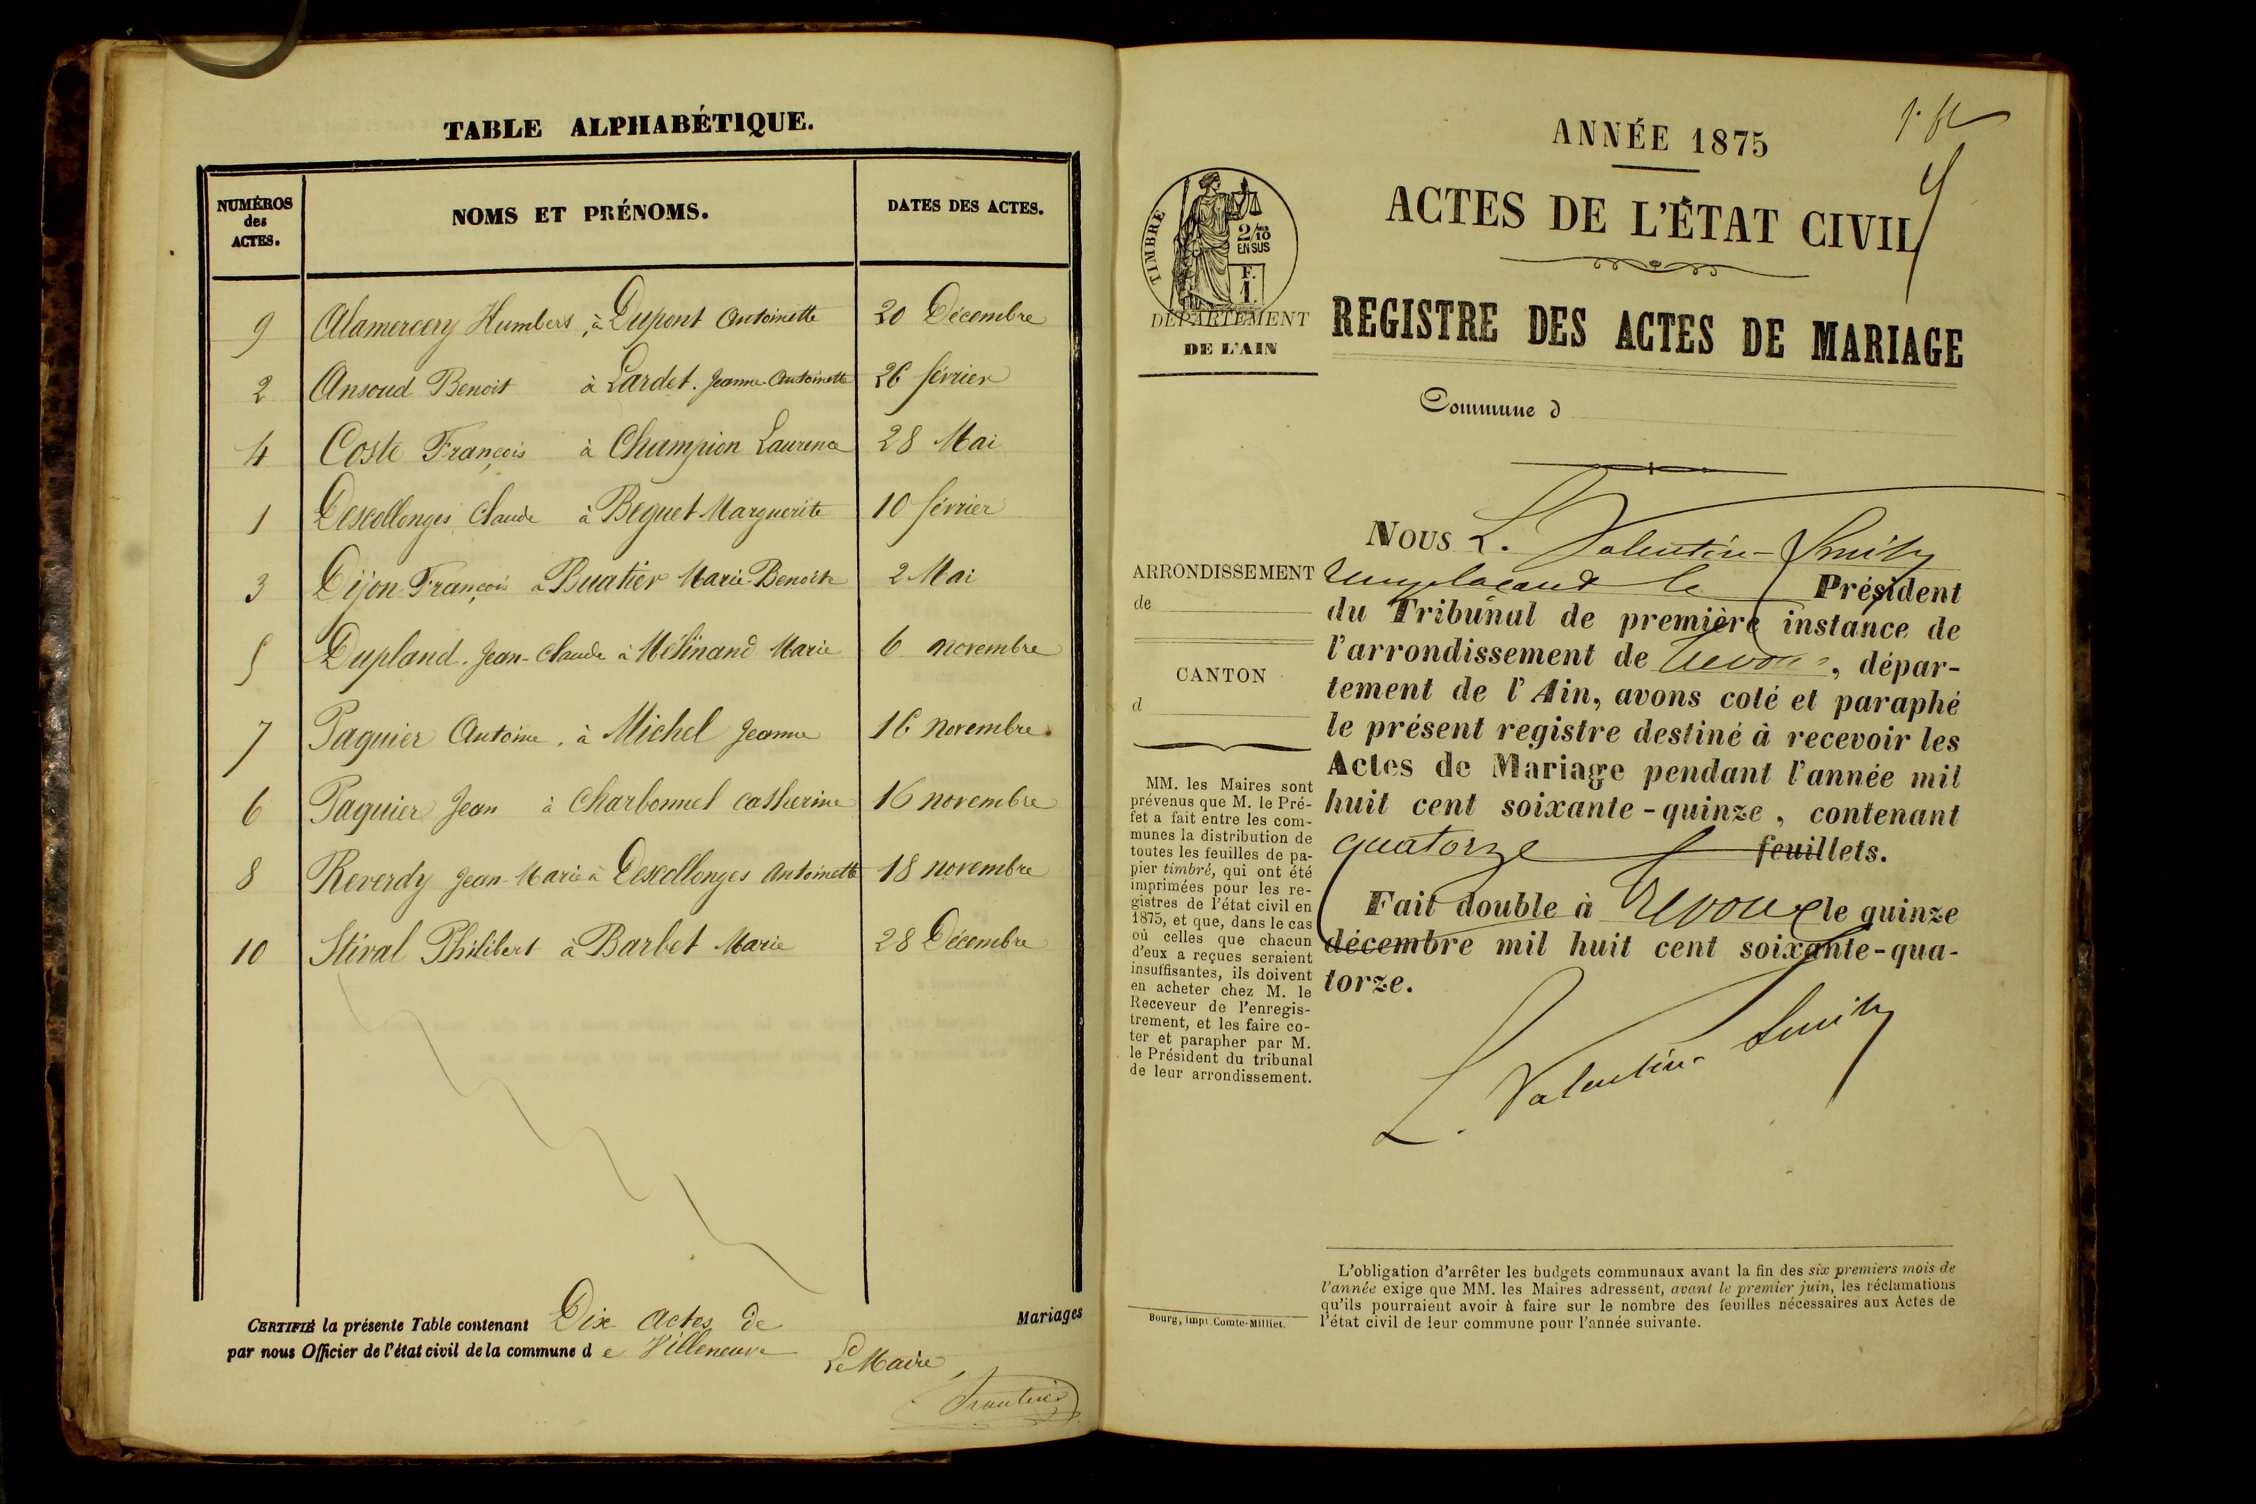 TABLE ALPHABÉTIQUE.
NUMÉROS
des
ACTES.
NOMS ET PRÉNOMS.
DATES DES ACTES.
9 Alamercery Humbert, à Dupont Antoinette 20 Décembre
2 Ansoud Benoit à Lardet. Jeanne-Antoinette 26 février
4 Coste François à Champion Laurence 28 Mai
1 Descollonges Claude à Beguet Marguerite 10 février
3 Dijon François à Buatier Marie-Benoite 2 Mai
5 Dupland. Jean-Claude à Mélinand Marie 6 novembre
7 Paquier Antoine, à Michel Jeanne 16 novembre
6 Paquier Jean à Charbonnel Catherine 16 novembre
8 Reverdy Jean-Marie à Descollonges Antoinette 18 novembre
10 Stival Philibert à Barbet Marie 28 Décembre
CERTIFIÉ la présente Table contenant Dix actes de Mariages
par nous Officier de l'état civil de la commune d e Villeneuve
Le Maire,
1. fe
ANNÉE 1875
ACTES DE L'ÉTAT CIVIL
TIMBRE
2/10
EN SUS
F.
1.
DÉPARTEMENT
DE L'AIN
REGISTRE DES ACTES DE MARIAGE
Commune d
ARRONDISSEMENT
de
CANTON
d
MM. les Maires sont
prévenus que M. le Pré-
fet a fait entre les com-
munes la distribution de
toutes les feuilles de pa-
pier timbré, qui ont été
imprimées pour les re-
gistres de l'état civil en
1875, et que, dans le cas
où celles que chacun
d'eux a reçues seraient
insuffisantes, ils doivent
en acheter chez M. le
Receveur de l'enregis-
trement, et les faire co-
ter et parapher par M.
le Président du tribunal
de leur arrondissement.
Bourg, impr. Comte-Milliet.
NOUS L. Valentin-Smith
remplaçant le Président
du Tribunal de première instance de
l'arrondissement de Trévoux, dépar-
tement de l'Ain, avons coté et paraphé
le présent registre destiné à recevoir les
Actes de Mariage pendant l'année mil
huit cent soixante-quinze, contenant
quatorze feuillets.
Fait double à Trévoux le quinze
décembre mil huit cent soixante-qua-
torze.
L. Valentin Smith
L'obligation d'arrêter les budgets communaux avant la fin des six premiers mois de
l'année exige que MM. les Maires adressent, avant le premier juin, les réclamations
qu'ils pourraient avoir à faire sur le nombre des feuilles nécessaires aux Actes de
l'état civil de leur commune pour l'année suivante.